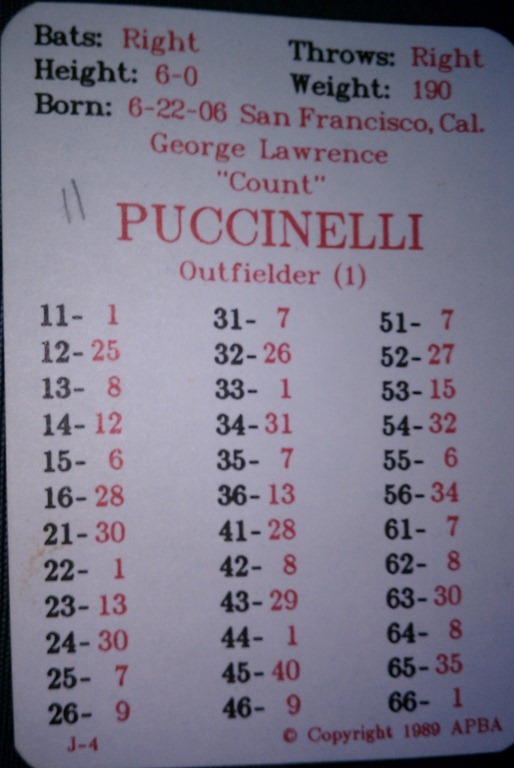 Bats: Right Throws: Right
Height: 6-0 Weight: 190
Born: 6-22-06 San Francisco, Cal.
George Lawrence
"Count"
11
PUCCINELLI
Outfielder (1)
11- 1 31- 7 51- 7
12-25 32-26 52-27
13- 8 33- 1 53-15
14-12 34-31 54-32
15- 6 35- 7 55- 6
16-28 36-13 56-34
21-30 41-28 61- 7
22- 1 42- 8 62- 8
23-13 43-29 63-30
24-30 44- 1 64- 8
25- 7 45-40 65-35
26- 9 46- 9 66- 1
J-4 © Copyright 1989 APBA